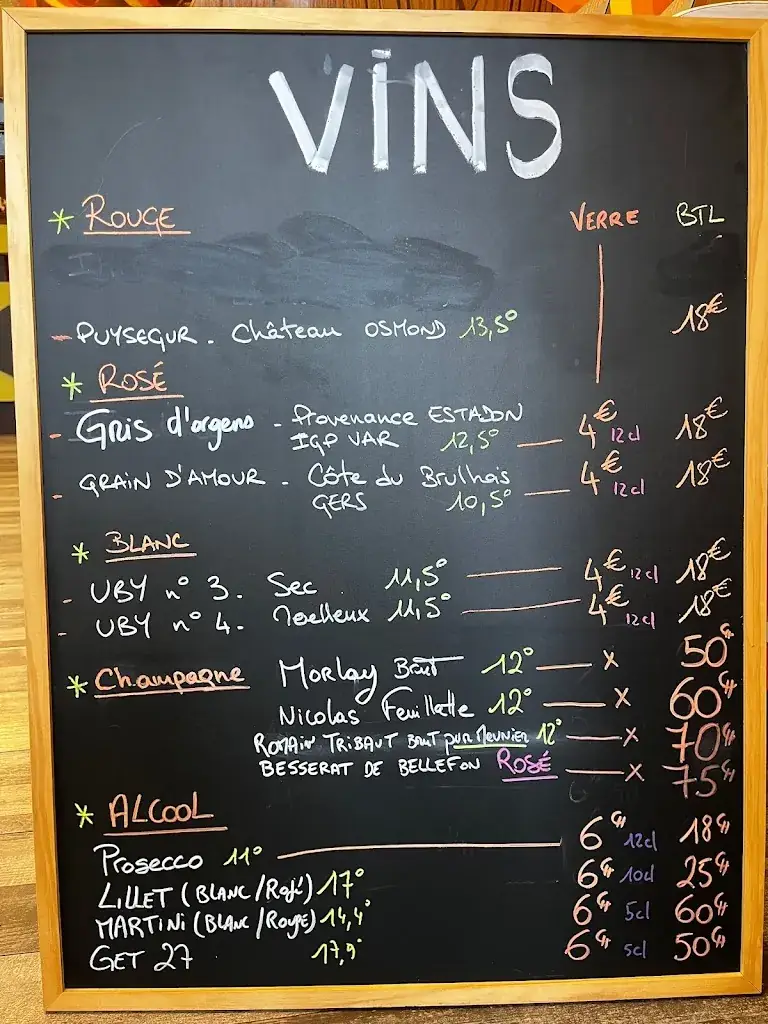 VINS
* ROUGE VERRE BTL
- PUYSEGUR. Château OSMOND 13,5° 18€
* ROSÉ
- Gris d'argens - Provenance ESTADON
IGP VAR 12,5° — 4€ 12cl 18€
- GRAIN D'AMOUR - Côte du Brulhois
GERS 10,5° — 4€ 12cl 18€
* BLANC
- UBY n° 3. Sec 11,5° — 4€ 12cl 18€
- UBY n° 4. Moelleux 11,5° — 4€ 12cl 18€
* Champagne Morlay Brut 12° — X 50€
Nicolas Feuillatte 12° — X 60€
ROMAIN TRIBAUT BRUT PUR MEUNIER 12° — X 70€
BESSERAT DE BELLEFON ROSÉ — X 75€
* ALCOOL
Prosecco 11° — 6€ 12cl 18€
LILLET (BLANC/Rosé) 17° 6€ 10cl 25€
MARTINI (BLANC/ROUGE) 14,4° 6€ 5cl 60€
GET 27 17,9° 6€ 5cl 50€